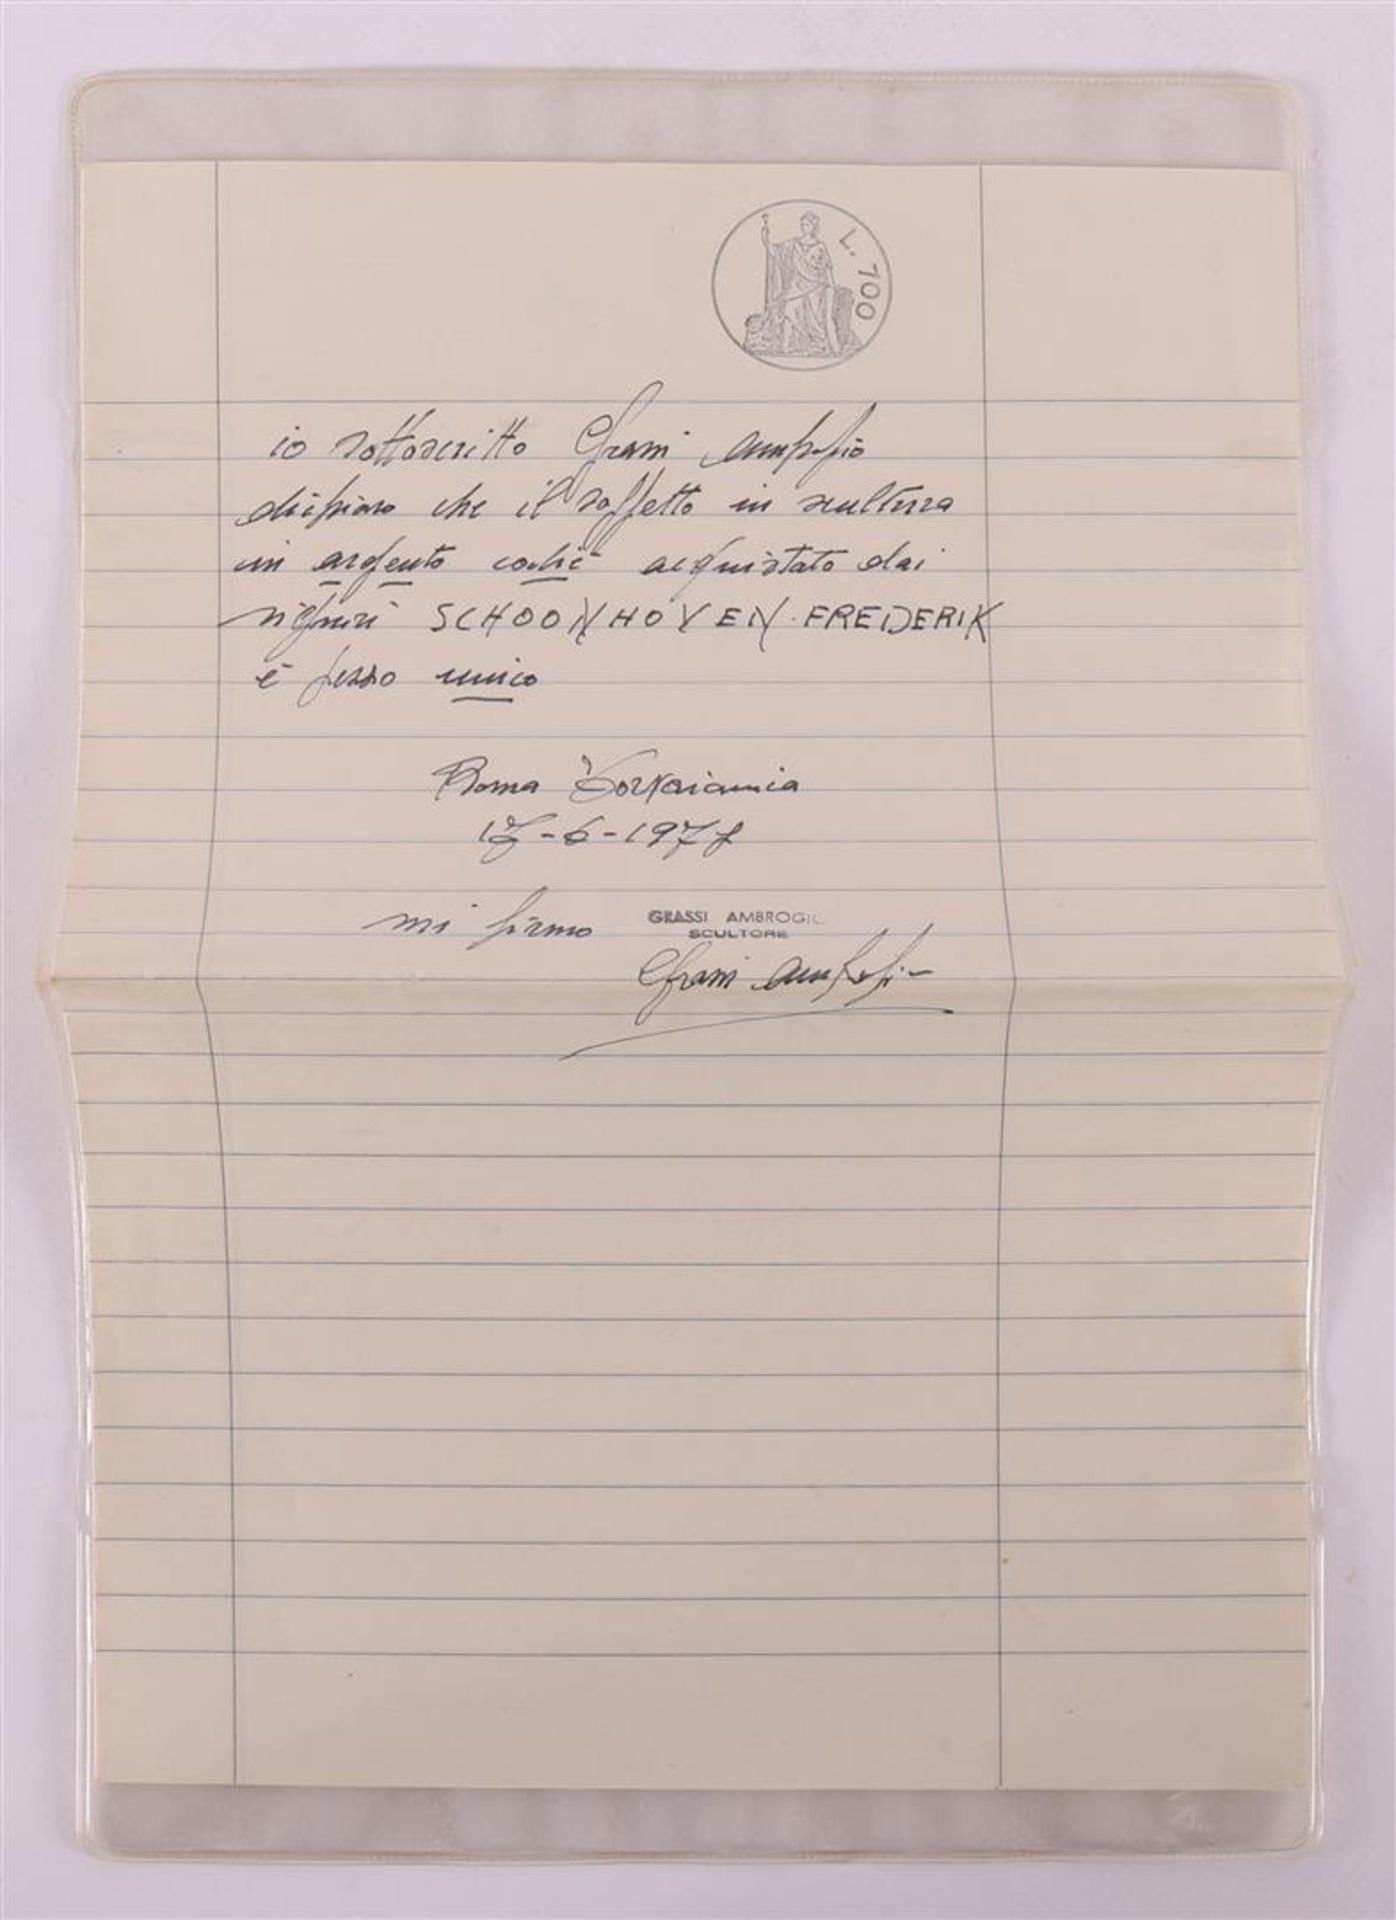 L. 700
io sottoscritto Grassi Ambrogio
dichiaro che il soggetto in scultura
in argento acquistato dai
signori SCHOONHOVEN FREDERIK
è pezzo unico
Roma Torvaianica
-6-197
mi firmo GRASSI AMBROGIO
SCULTORE
Grassi Ambrogio